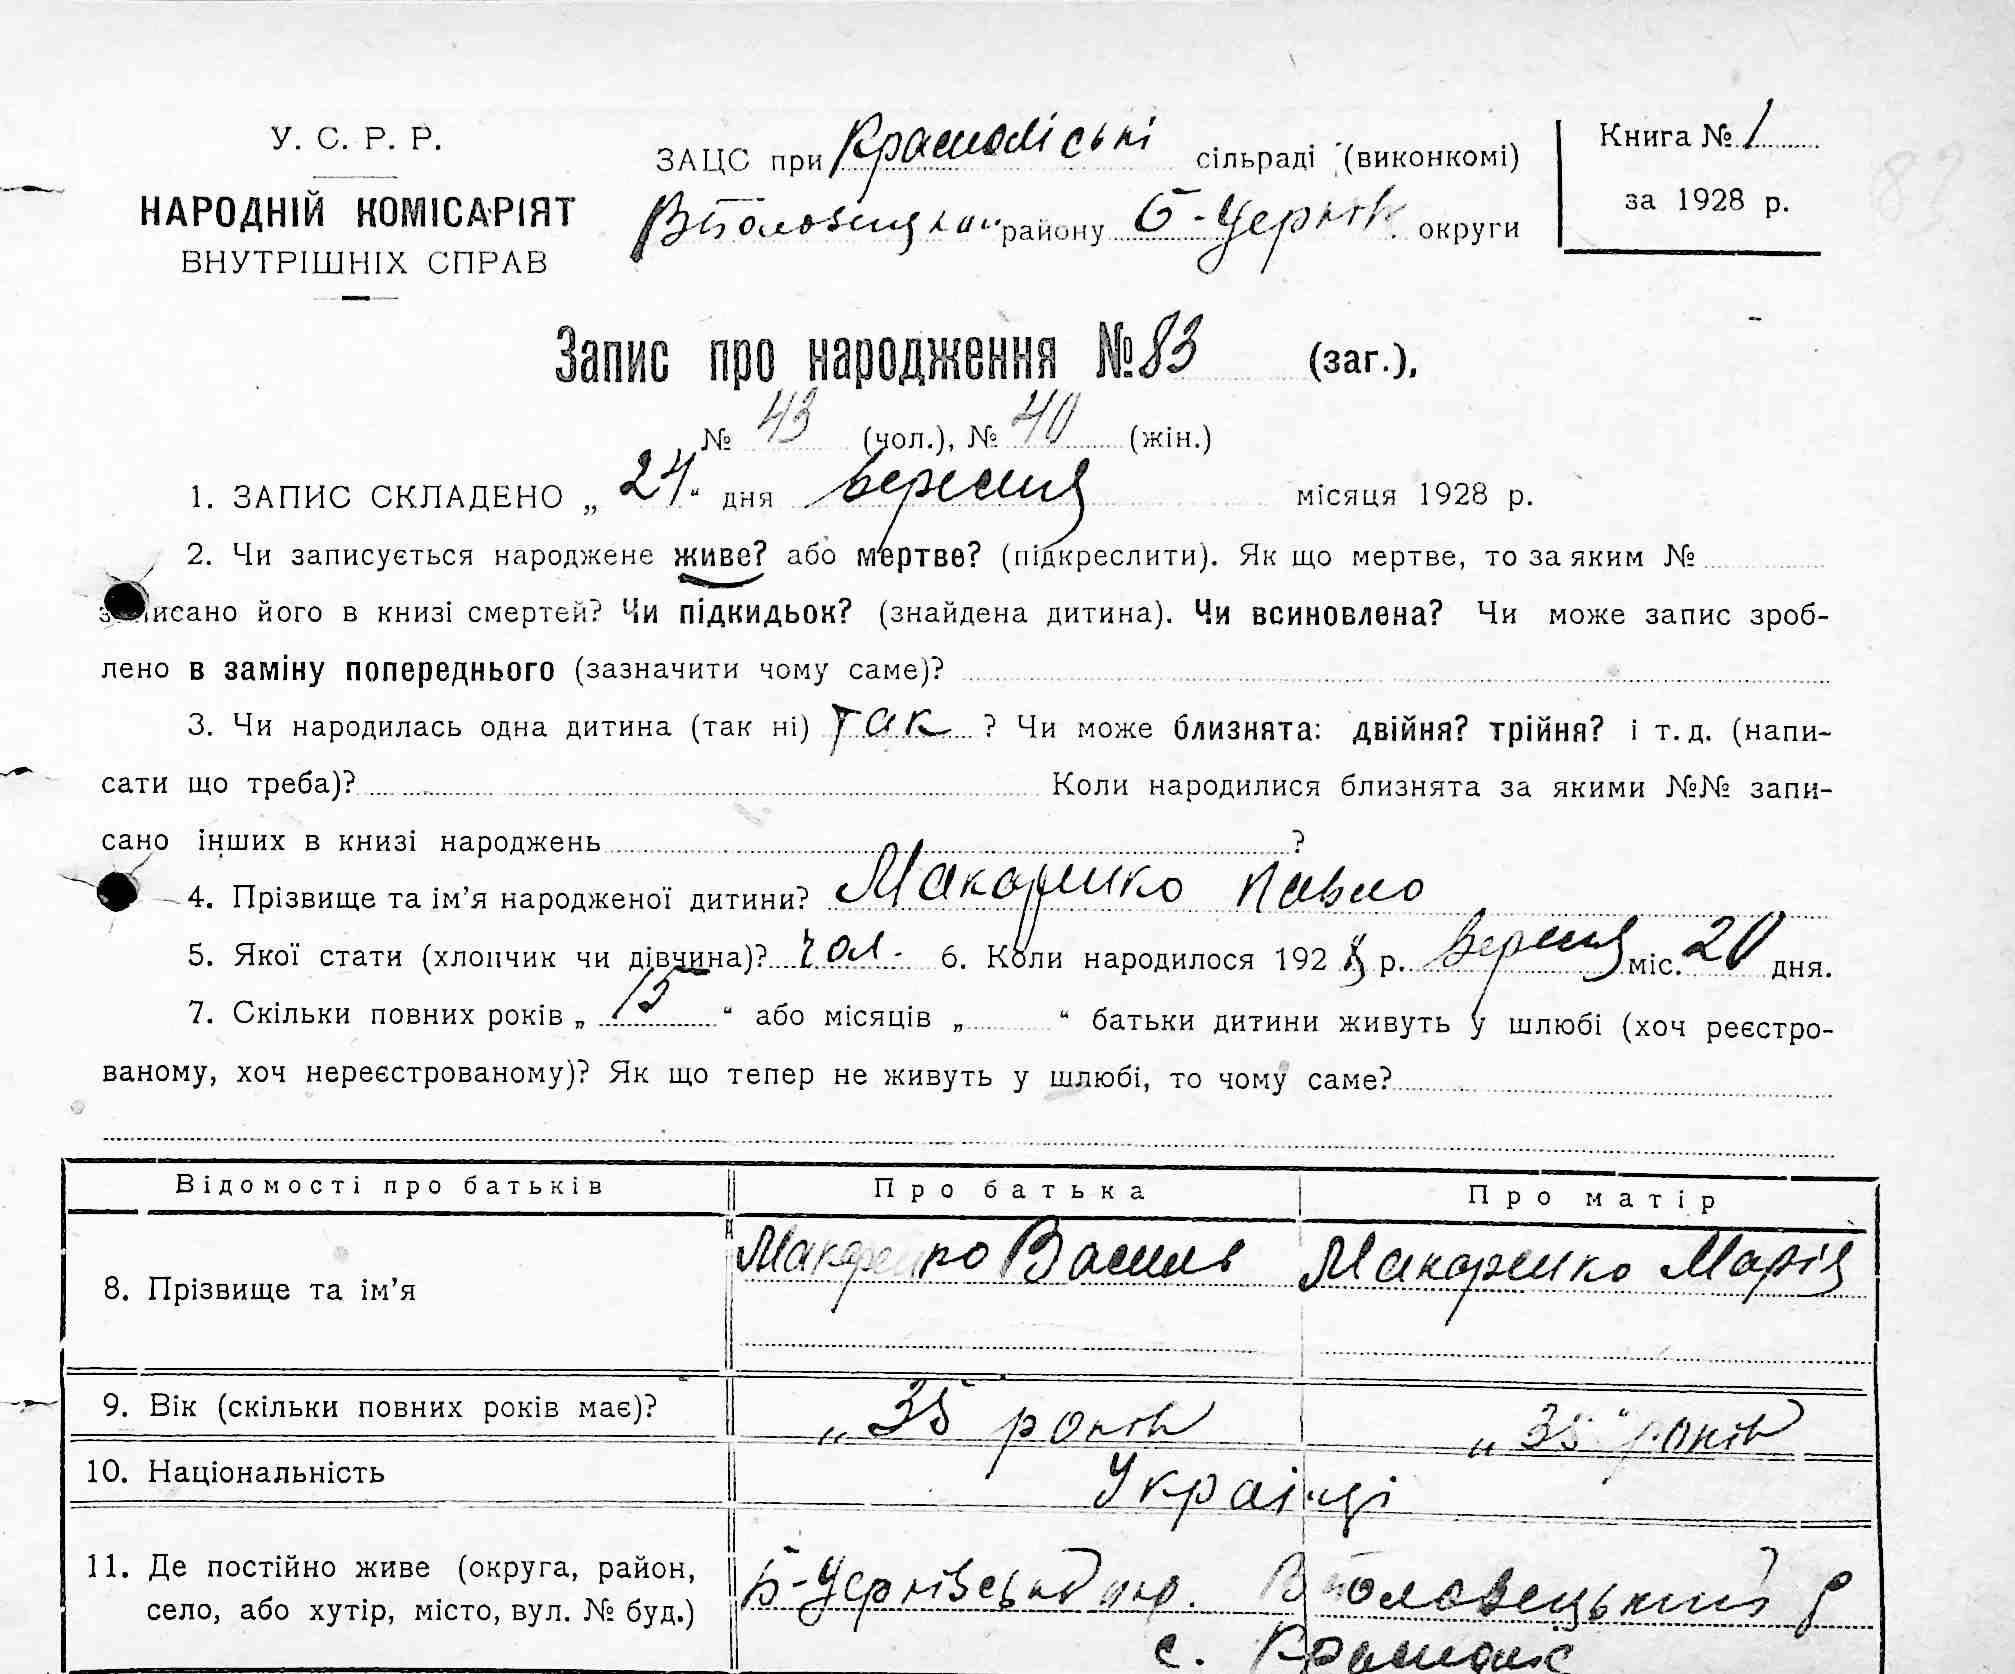 У. С. Р. Р.
НАРОДНІЙ КОМІСАРІЯТ
ВНУТРІШНІХ СПРАВ
ЗАЦС при сільраді (виконкомі)
району Б-Церків. округи
Книга № 1
за 1928 р.
Запис про народження № 83 (заг.),
№ 43 (чол.), № 40 (жін.)
1. ЗАПИС СКЛАДЕНО „ 24 “ дня вересня місяця 1928 р.
2. Чи записується народжене живе? або мертве? (підкреслити). Як що мертве, то за яким №
записано його в книзі смертей? Чи підкидьок? (знайдена дитина). Чи всиновлена? Чи може запис зроб-
лено в заміну попереднього (зазначити чому саме)?
3. Чи народилась одна дитина (так ні) так ? Чи може близнята: двійня? трійня? і т. д. (напи-
сати що треба)? Коли народилися близнята за якими №№ запи-
сано інших в книзі народжень ?
4. Прізвище та ім’я народженої дитини? Макаренко Павло
5. Якої стати (хлопчик чи дівчина)? чол. 6. Коли народилося 1928 р. вересня міс. 20 дня.
7. Скільки повних років „ 15 “ або місяців „ “ батьки дитини живуть у шлюбі (хоч реєстро-
ваному, хоч нереєстрованому)? Як що тепер не живуть у шлюбі, то чому саме?
Відомості про батьків Про батька Про матір
8. Прізвище та ім’я Макаренко Василь Макаренко Марія
9. Вік (скільки повних років має)? „ 35 років „ 35 “ років
10. Національність Українці
11. Де постійно живе (округа, район, Б-Церківської окр. р
село, або хутір, місто, вул. № буд.)
с.